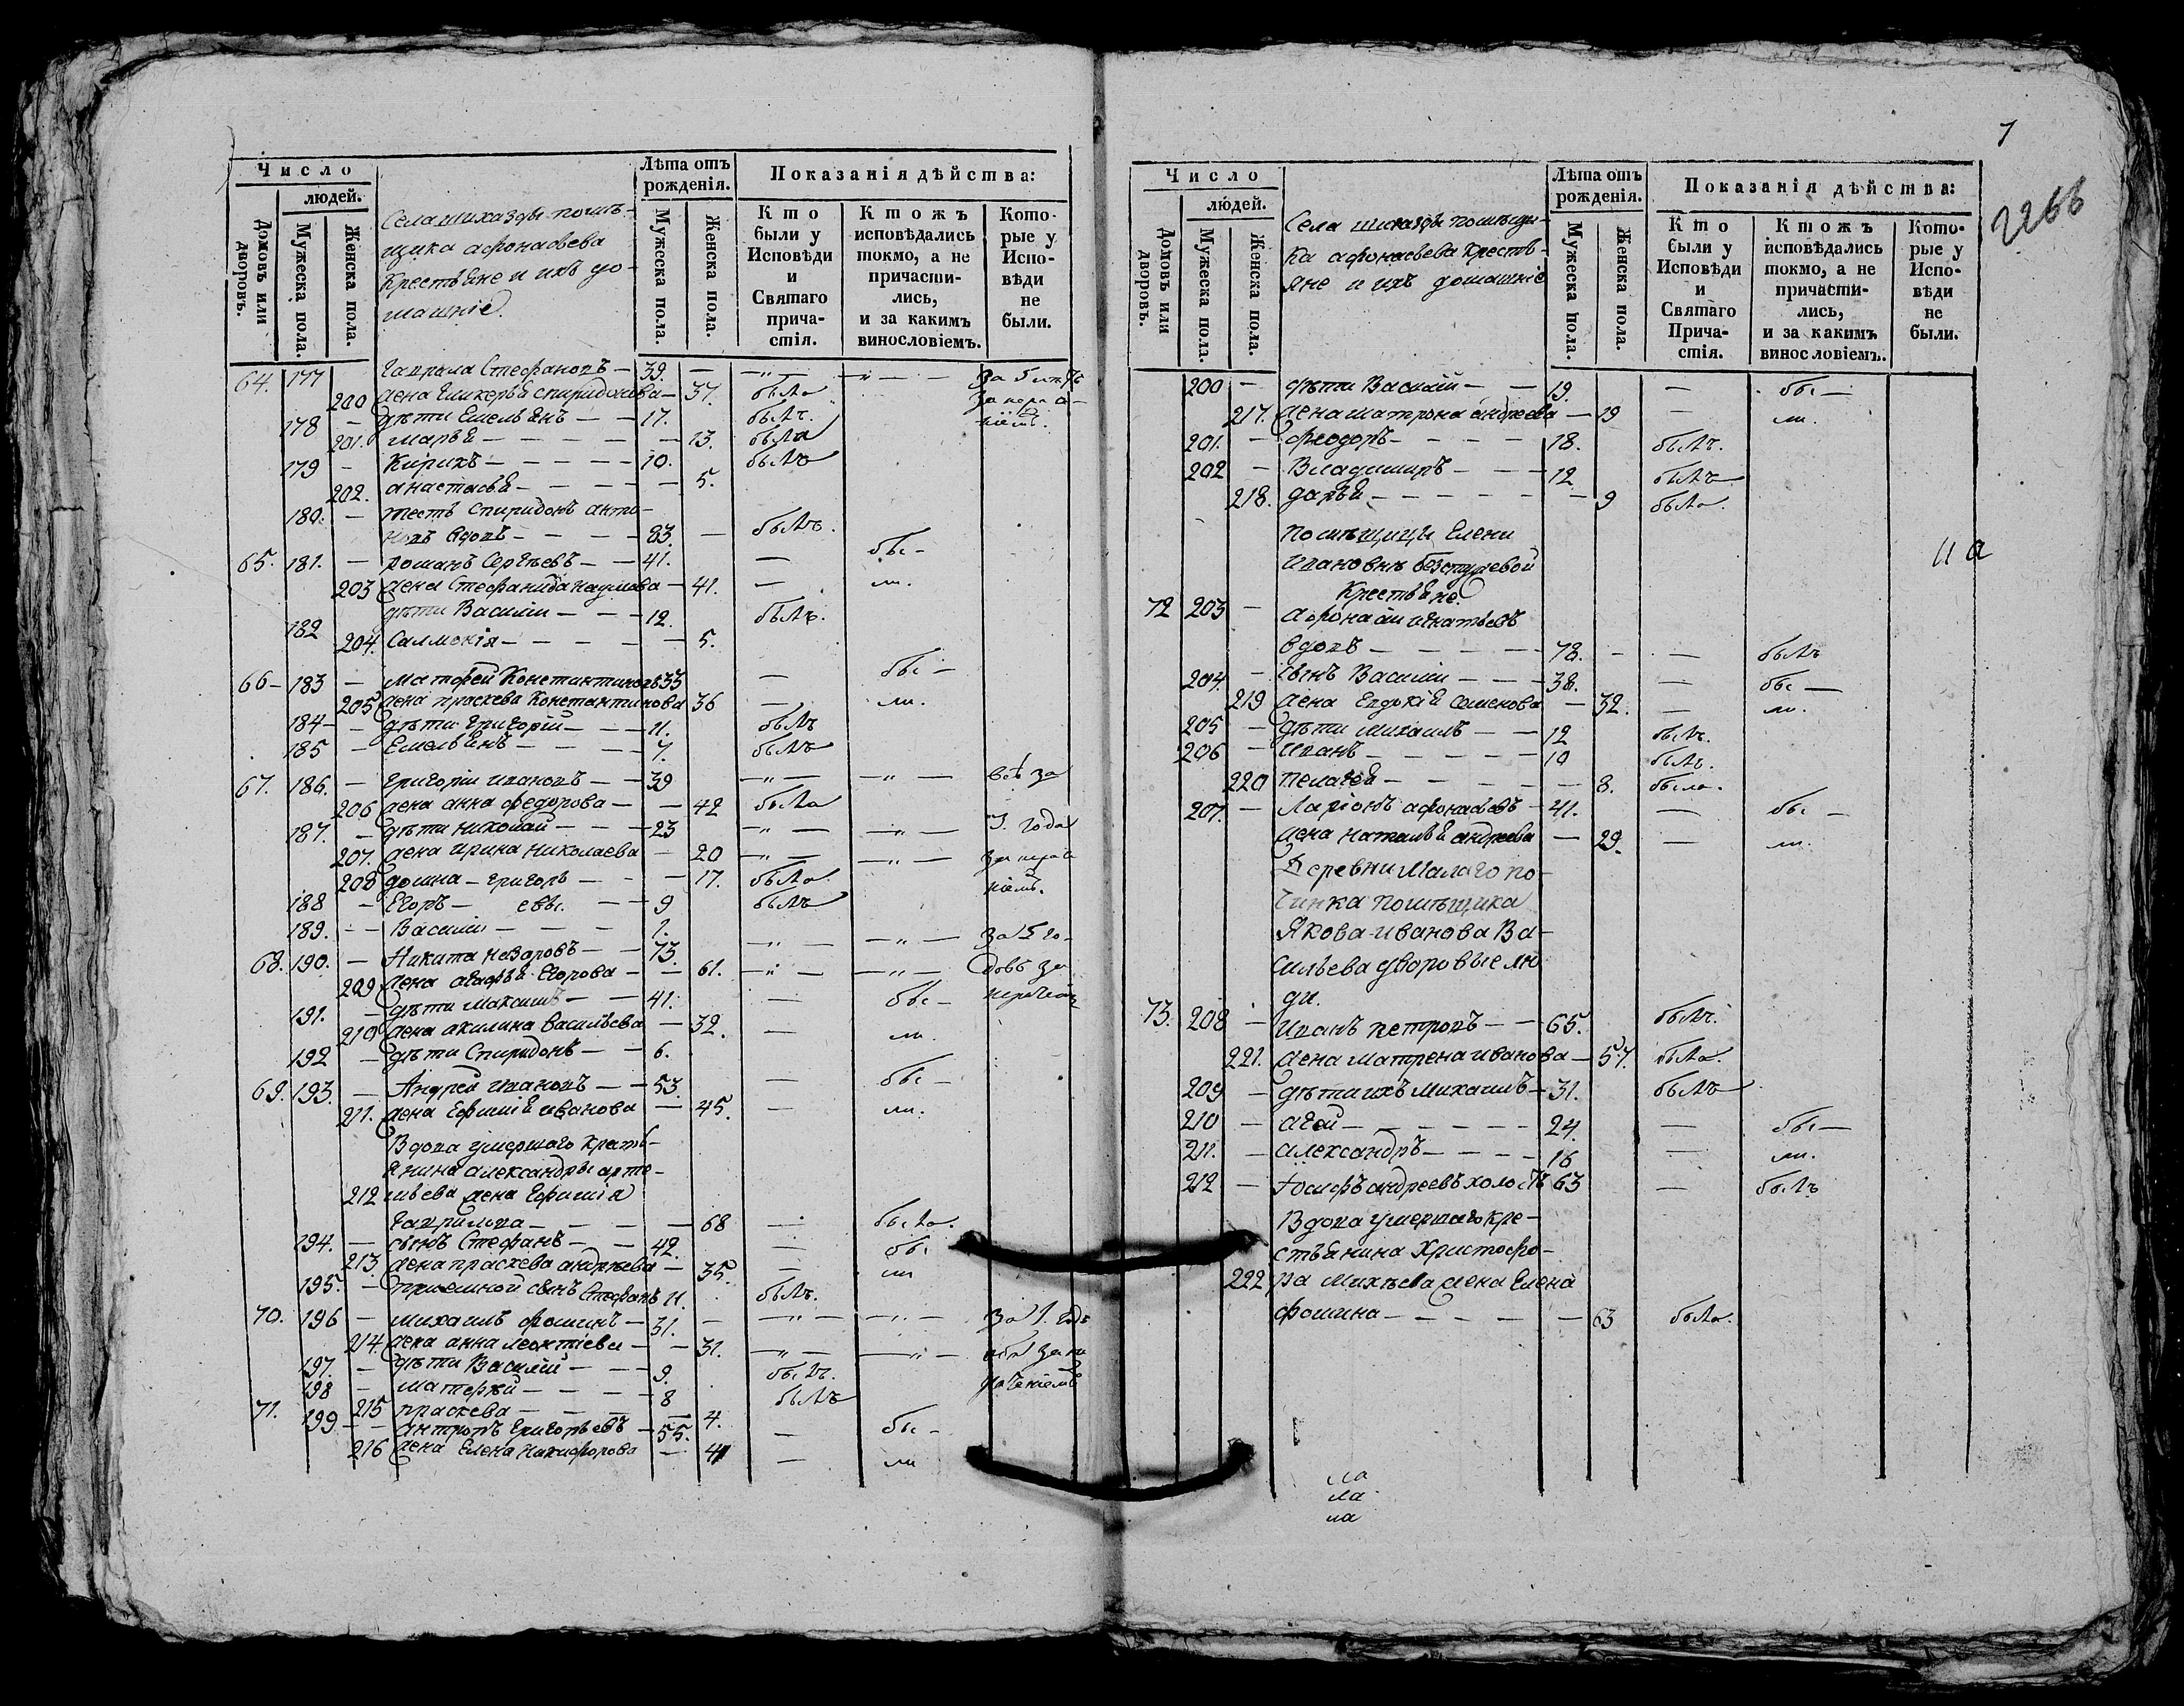 Число
людей.
Домовъ или дворовъ.
Мужеска пола.
Женска пола.
Села шихазды помѣ-
щика афонасьева
крестьяне и ихъ до-
машніе
Лѣта отъ рожденія.
Мужеска пола.
Женска пола.
Показанія дѣйства:
Кто были у Исповѣди и Святаго причастія.
Ктожъ исповѣдались токмо, а не причастились, и за какимъ винословіемъ.
Которые у Исповѣди не были.
64. 177 гаврила Стефановъ — 39. — —„— —„— —
200 жена Гликерья спиридонова — 37. была
178 — дѣти Емельянъ — 17. былъ.
201. марья — 13. была
179 — Кирикъ — 10. былъ
202. анастасья — 5.
180. — тесть Спиридонъ анти-
повъ вдовъ — 83. — былъ.
65. 181. — романъ Сергѣевъ — 41. — бы-
203 жена Стефанида наумова — 41. — ли.
182 дѣти Василіи — 12. былъ.
204. Саломонія — 5.
66 — 183 — Матфей Константиновъ 35 — бы —
205 жена праскева Константинова 36 — ли.
184 — дѣти григорій — 11. былъ
185 — Емельянъ — 7. былъ
67. 186. — григоріи ивановъ — 39 —„— —„—
206 жена анна федорова — 42 была
187. — дѣти николай — 23 —„— —„— 3. года
207. жена ирина николаева — 20 —„— —„—
208 домна — григорь — 17. была
188 — Егоръ — евы. — 9 былъ
189. — Василіи — 1.
68. 190. — Никита назаровъ — 73. —„— —„— за 5 го-
209 жена агафья Егорова — 61. —„— —„— довъ за
191. — дѣти максимъ — 41. — бы —
210 жена акилина васильева — 32. — ли.
192 — дѣти Спиридонъ — 6.
69. 193. — Андрей ивановъ — 53. — бы —
211. жена Ефимія иванова — 45. — ли.
Вдова умершаго кресть-
янина александры арте-
212 мьева жена Ефимія
гаврилова — 68 — была.
194. — сынъ Стефанъ — 42. — бы
213. жена праскева андрѣева — 35. — ли
195. — приемной сынъ Стефанъ 11. былъ.
70. 196 — михаилъ фоминъ — 31. — —„— —„— за 1. годъ
214. жена анна леонтіева — 31. —„— —„—
197. — дѣти Василій — 9. былъ.
198 — матфѣй — 8 былъ
215 праскева — 4.
71. 199 — антропъ григорьевъ — 55. — бы —
216 жена Елена никифорова — 41 — ли
7
2266
Число
людей.
Домовъ или дворовъ.
Мужеска пола.
Женска пола.
Села шихазды помѣщи-
ка афонасьева кресть-
яне и ихъ домашніе
Лѣта отъ рожденія.
Мужеска пола.
Женска пола.
Показанія дѣйства:
Кто были у Исповѣди и Святаго Причастія.
Ктожъ исповѣдались токмо, а не причастились, и за какимъ винословіемъ.
Которые у Исповѣди не были.
200 — дѣти Василіи — 19. — бы —
217. жена матрона андреева — 19 — ли.
201. — феодоръ — 18. былъ.
202 — Владимиръ — 12 былъ
218. дарья — 9 была.
помѣщицы Елены
ивановны безстужевой
Крестьяне
72 203 — афонасіи игнатьевъ
вдовъ — 78. — — былъ
204. — сынъ Василіи — 38. — бы —
219 жена Евдокія семенова — 32. — ли.
205 — дѣти михаилъ — 12 былъ.
206 — иванъ — 10 былъ.
220 пелагея — 8. была.
207. — Ларіонъ афонасьевъ — 41. — бы —
жена наталья андреева — 29. — ли.
Деревни Малаго по-
чинка помѣщика
Якова иванова Ва-
сильева дворовые лю
ди.
73. 208 — иванъ петровъ — 65. былъ.
221. жена матрена иванова — 57. была.
209 — дѣти ихъ михаилъ — 31. былъ
210 — агей — 24. — бы —
211. — александръ — 16 — ли.
212 — Іосифъ андреевъ холостъ 63 — былъ
Вдова умершаго кре-
стьянина Христофо-
222 ра михѣева жена Елена
фомина — 63 была.
ла
ла
ла